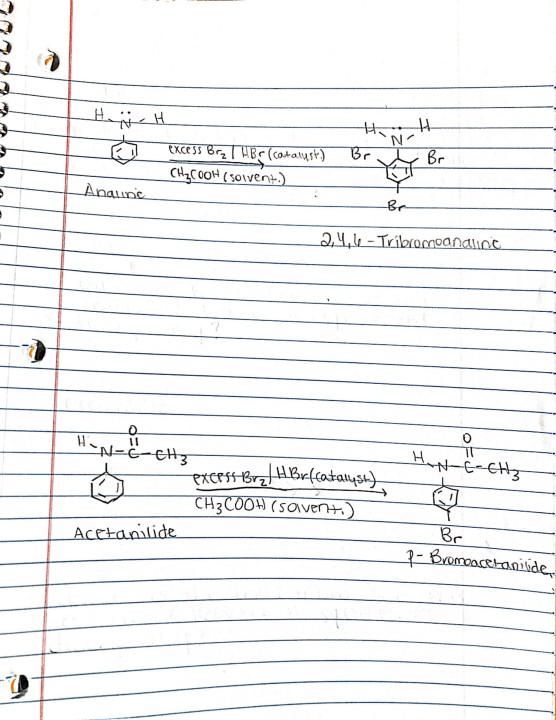 H N H
excess Br₂ / HBr (catalyst)
CH₃COOH (solvent.)
Analine
H N H
Br Br
Br
2,4,6 - Tribromoanaline
O
H - N - C - CH₃
excess Br₂ / HBr (catalyst)
CH₃COOH (solvent.)
Acetanilide
O
H N - C - CH₃
Br
p - Bromoacetanilide